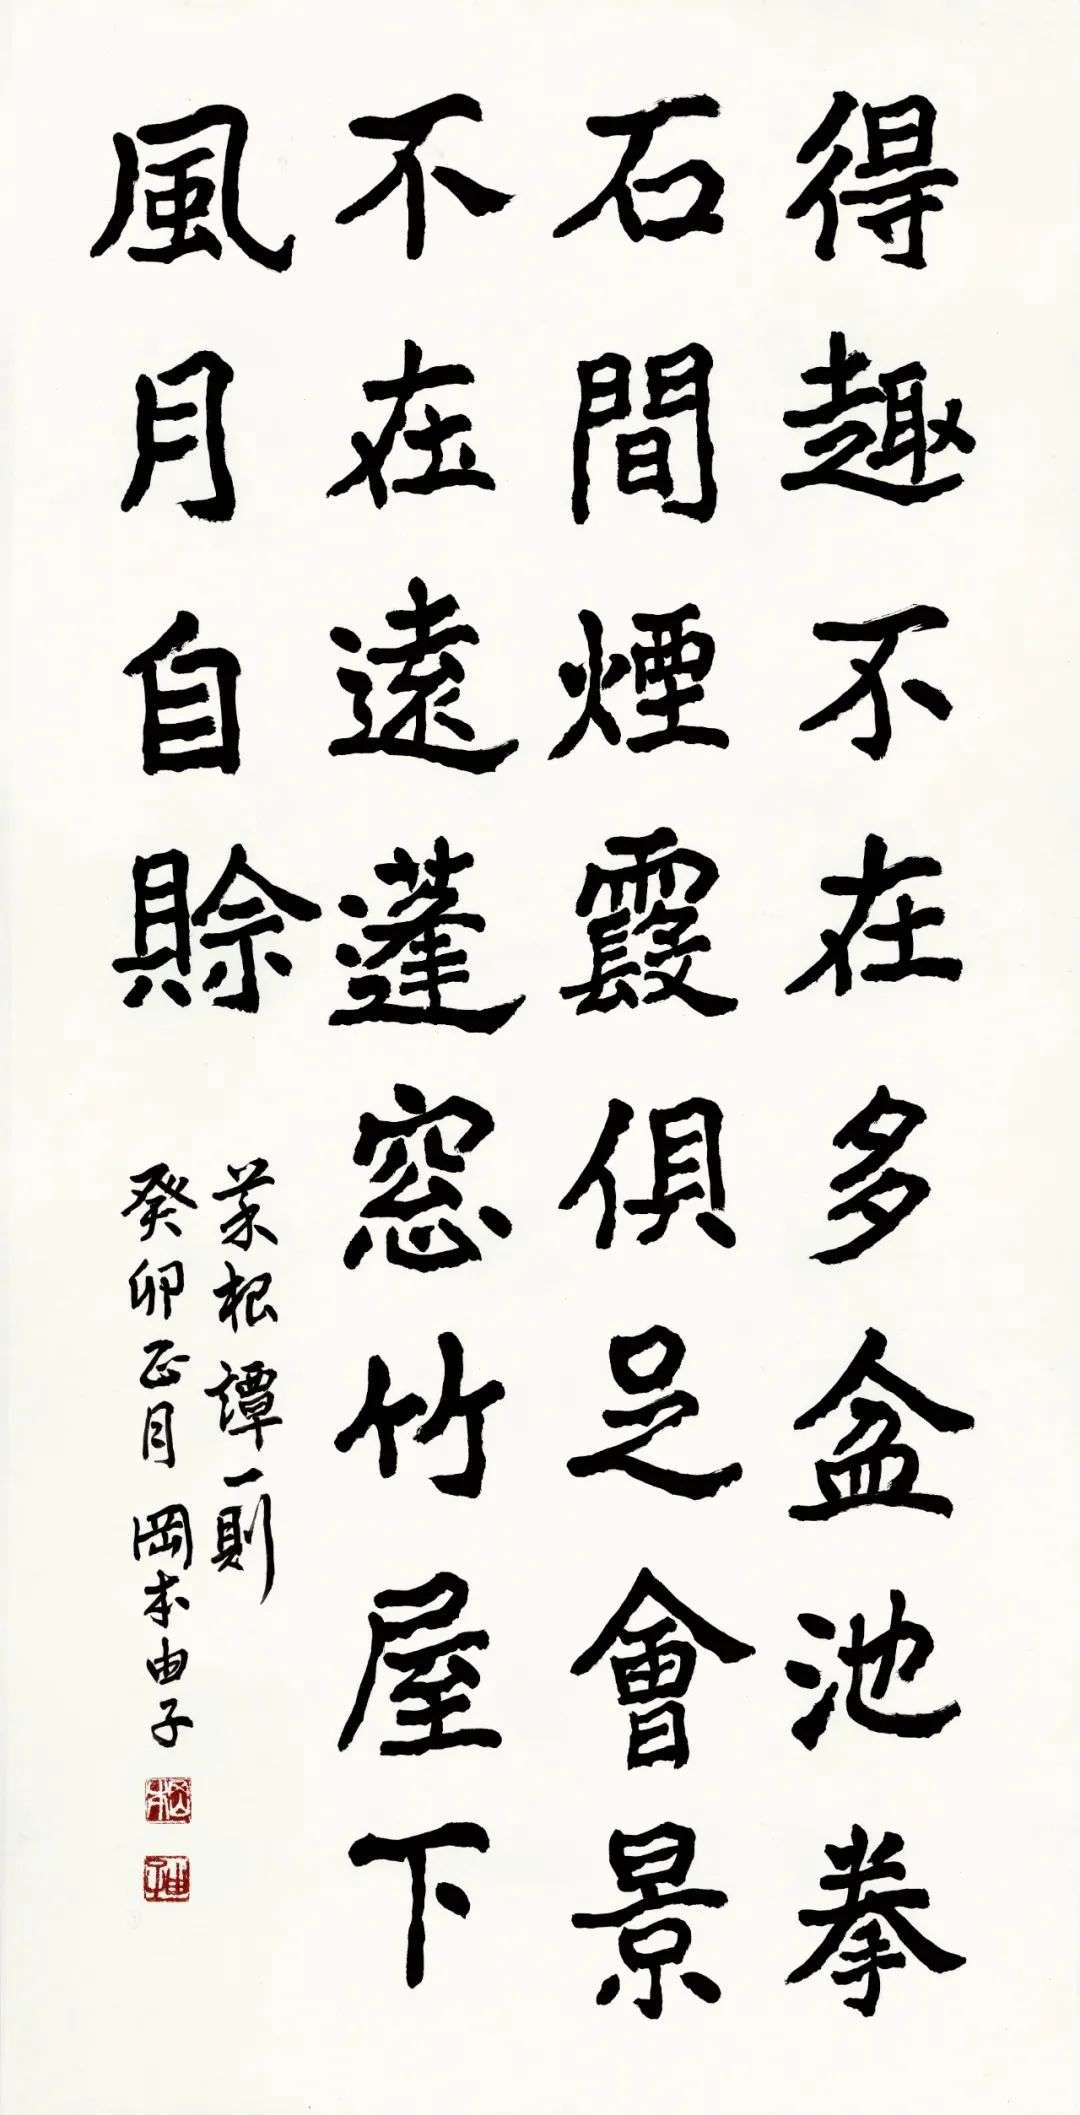 得趣不在多盆池拳
石間煙霞俱足會景
不在遠蓬窓竹屋下
風月自賒
菜根譚一則
癸卯正月 岡本由子